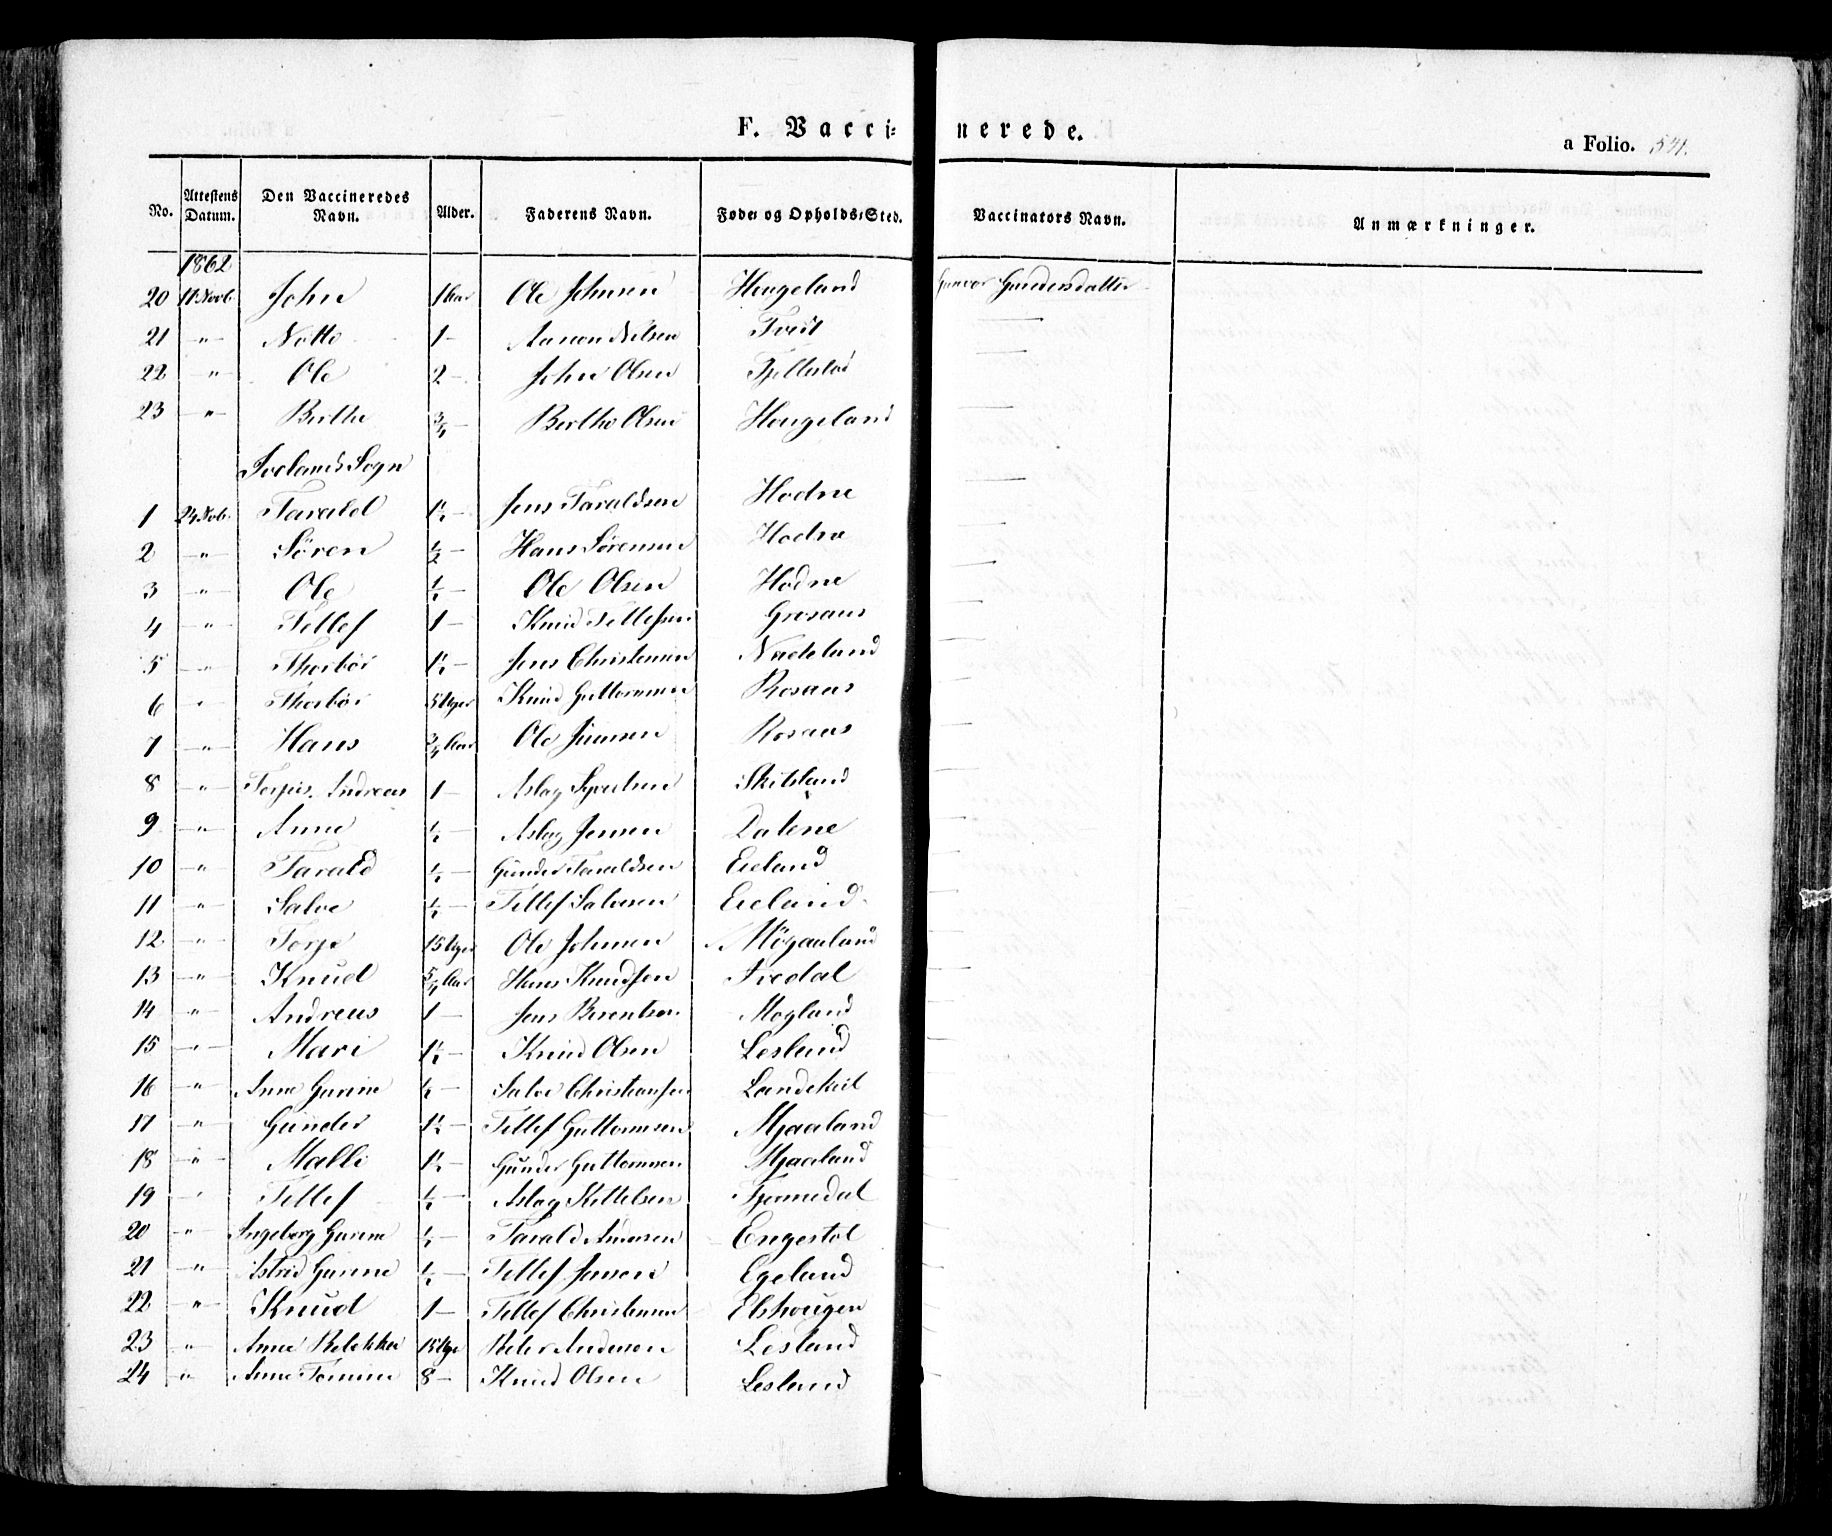 F. Vaccinerede.
a Folio. 521.
No. | Attestens Datum. | Den Vaccineredes Navn. | Alder. | Faderens Navn. | Føde og Opholds-Sted. | Vaccinators Navn. | Anmærkninger.
1862
20 11 Novb. John 1 Aar Ole Johnsen Hougeland Gunvor Gundersdatter
21 " Notto 1 — Aanon Nilsen Tveit —
22 " Ole 2 — John Olsen Fjellestad —
23 " Birthe 3/4 — Berthe Olsen Hougeland —
Ivelands Sogn
1 24 Novb. Tarald 1 1/2 — Jens Taraldsen Hodne —
2 " Søren 1/2 — Hans Sørensen Hodne —
3 " Ole 1/2 — Ole Olsen Hodne —
4 " Tellef 1 — Knud Tellefsen Grosaas —
5 " Thorbør 1 1/2 — Jens Christensen Nateland —
6 " Thorbør 5 Uger Knud Guttormsen Rosaas —
7 " Hans 3/4 Aar Ole Jensen Rosaas —
8 " Terjus Andreas 1 — Aslag Syvertsen Skibsland —
9 " Anne 1/2 — Aslag Jensen Dalene —
10 " Tarald 1/2 — Gunder Taraldsen Eieland —
11 " Salve 1/2 — Tellef Salvesen Eieland —
12 " Terje 15 Uger Ole Johnsen Møgaaland —
13 " Knud 5/4 Aar Hans Knudsen Iredal —
14 " Andreas 1 — Jens Berentsen Mogland —
15 " Mari 1 1/2 — Knud Olsen Lesland —
16 " Anne Gurine 1/2 — Salve Christiansen Landskeil —
17 " Gunder 1 1/2 — Tellef Guttormsen Mjaaland —
18 " Malli 1 1/2 — Gunder Guttormsen Mjaaland —
19 " Tellef 1/2 — Aslag Kittelsen Fjermedal —
20 " Ingeborg Gurine 1/2 — Tarald Andersen Engestøl —
21 " Astrid Gurine 1/2 — Tellef Jensen Egeland —
22 " Knud 1 — Tellef Christensen Elshougen —
23 " Anne Rebekka 15 Uger Peder Andersen Lesland —
24 " Anne Tomine 8 — Knud Olsen Lesland —